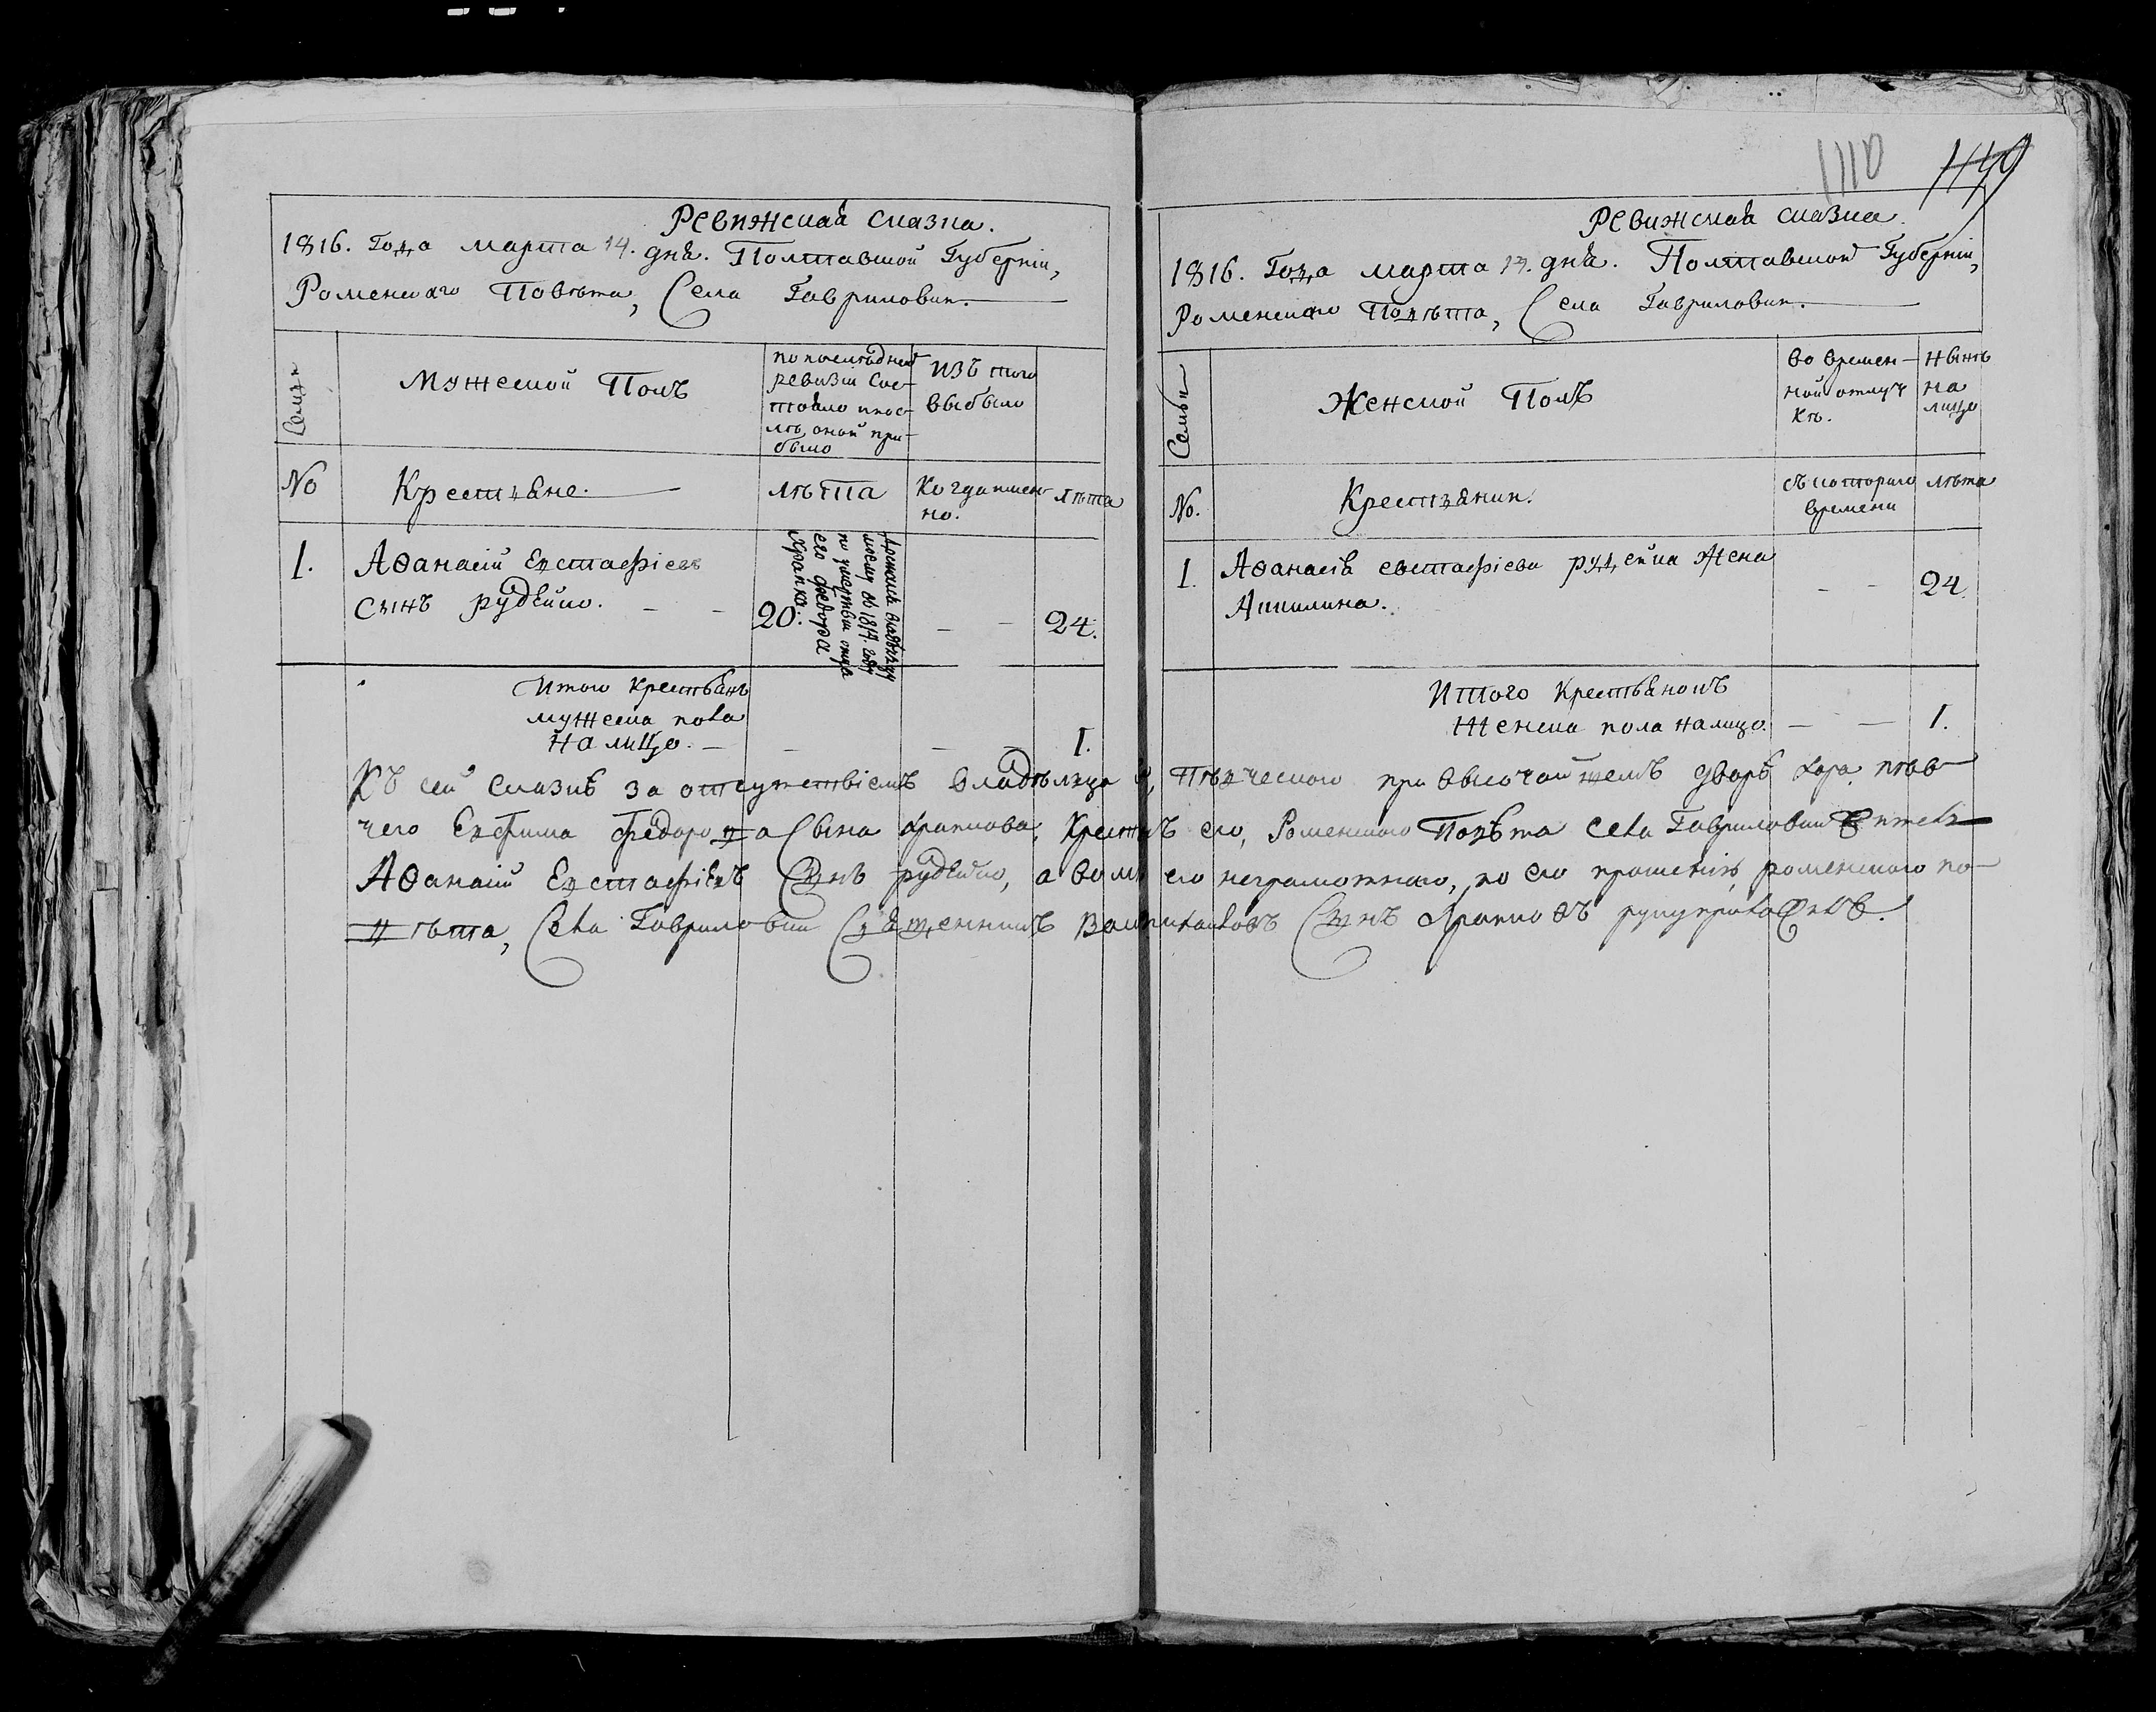 1110 1149
Ревижская сказка.
1816. Года марта 14. дня. Полтавской Губерніи,
Роменскаго Повѣта, Села Гавриловки.
Семьи
Мужеской Полъ
по последней
ревизіи сос-
тояло и пос-
лѣ оной при-
было
Изъ того
выбыло
No
Крестьяне.
лѣта
Когда имен-
но.
лѣта
1.
Афанасій Евстафіевъ
сынъ рудейко.
20.
Достался владѣльцу
въ 1814. году
по смерти отца
его Федора
Храпка.
24.
Итого крестьянъ
мужеска пола
на лицо.
1.
Ревижская сказка.
1816. Года марта 14. дня. Полтавской Губерніи,
Роменскаго Повѣта, Села Гавриловки.
Семьи
Женской Полъ
во времен-
ной отлуч
кѣ.
Нынѣ
на
лицо
No.
Крестьянки.
съ котораго
времени
лѣта
1.
Афанасія евстафіева рудейка Жена
Акилина.
24
Итого Крестьянокъ
женска пола на лицо.
1.
Къ сей сказкѣ за отсутствіемъ владѣльца при высочайшемъ дворѣ хора пѣв-
чего Ефима Федорова Сына храпкова, его, Роменскаго Повѣта села Гавриловки житель
Афанасій Евстафіевъ Сынъ рудейко, а вомѣ его неграмотнаго, по его прошенію роменского по-
вѣта, села Гавриловки Священникъ Сынъ руку приложилъ.